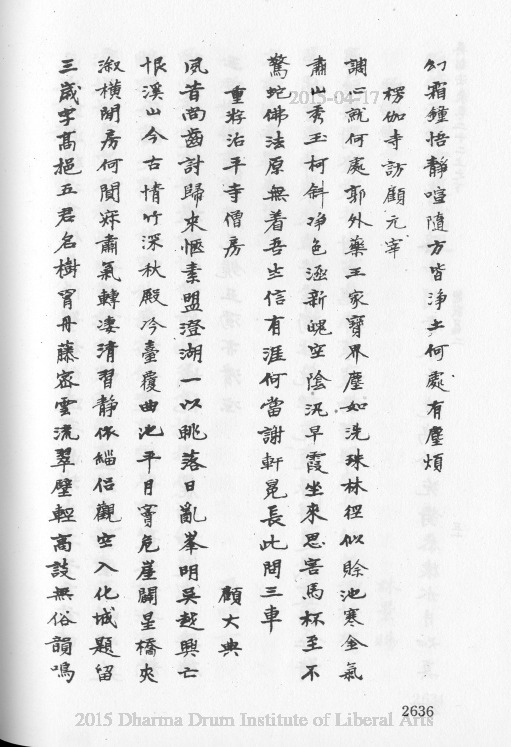 幻霜鐘悟靜喧隨方皆淨土何處有塵煩
楞伽寺訪顧元宰
調心就何處郭外藥王家寶界塵如洗珠林徑似賒池寒金氣
肅山秀玉柯斜淨色涵新魄空陰汎早霞坐來思害馬杯至不
驚蛇佛法原無着吾生信有涯何當謝軒冕長此問三車
重遊治平寺僧房
顧大典
夙昔尚齒討歸來愜素盟澄湖一以眺落日亂峯明吳越興亡
恨溪山今古情竹深秋殿冷臺覆曲池平月窨危崖闢星橋夾
溆橫閒房何閴寂肅氣轉凄清習靜依緇侶觀空入化城題留
三歲字高挹五君名樹罥丹藤密雲流翠壁輕高談無俗韻鳴
2015-04-17
2636
2015 Dharma Drum Institute of Liberal Arts